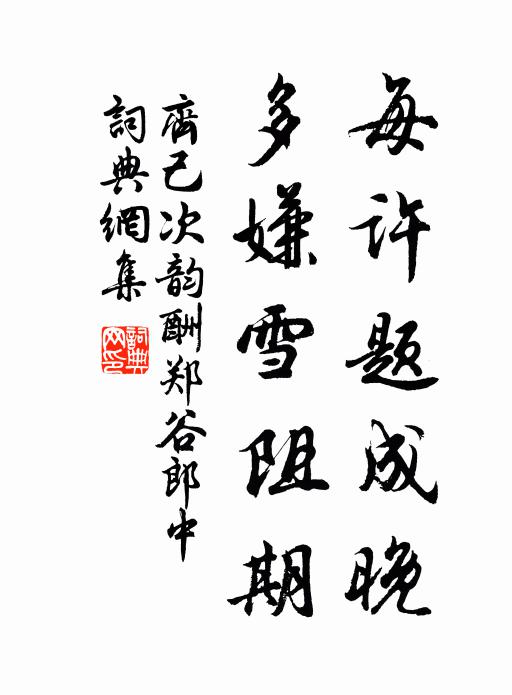 每许题成晚
多嫌雪阻期
齊己次韵酬郑谷郎中
詞典網集
詞典网印